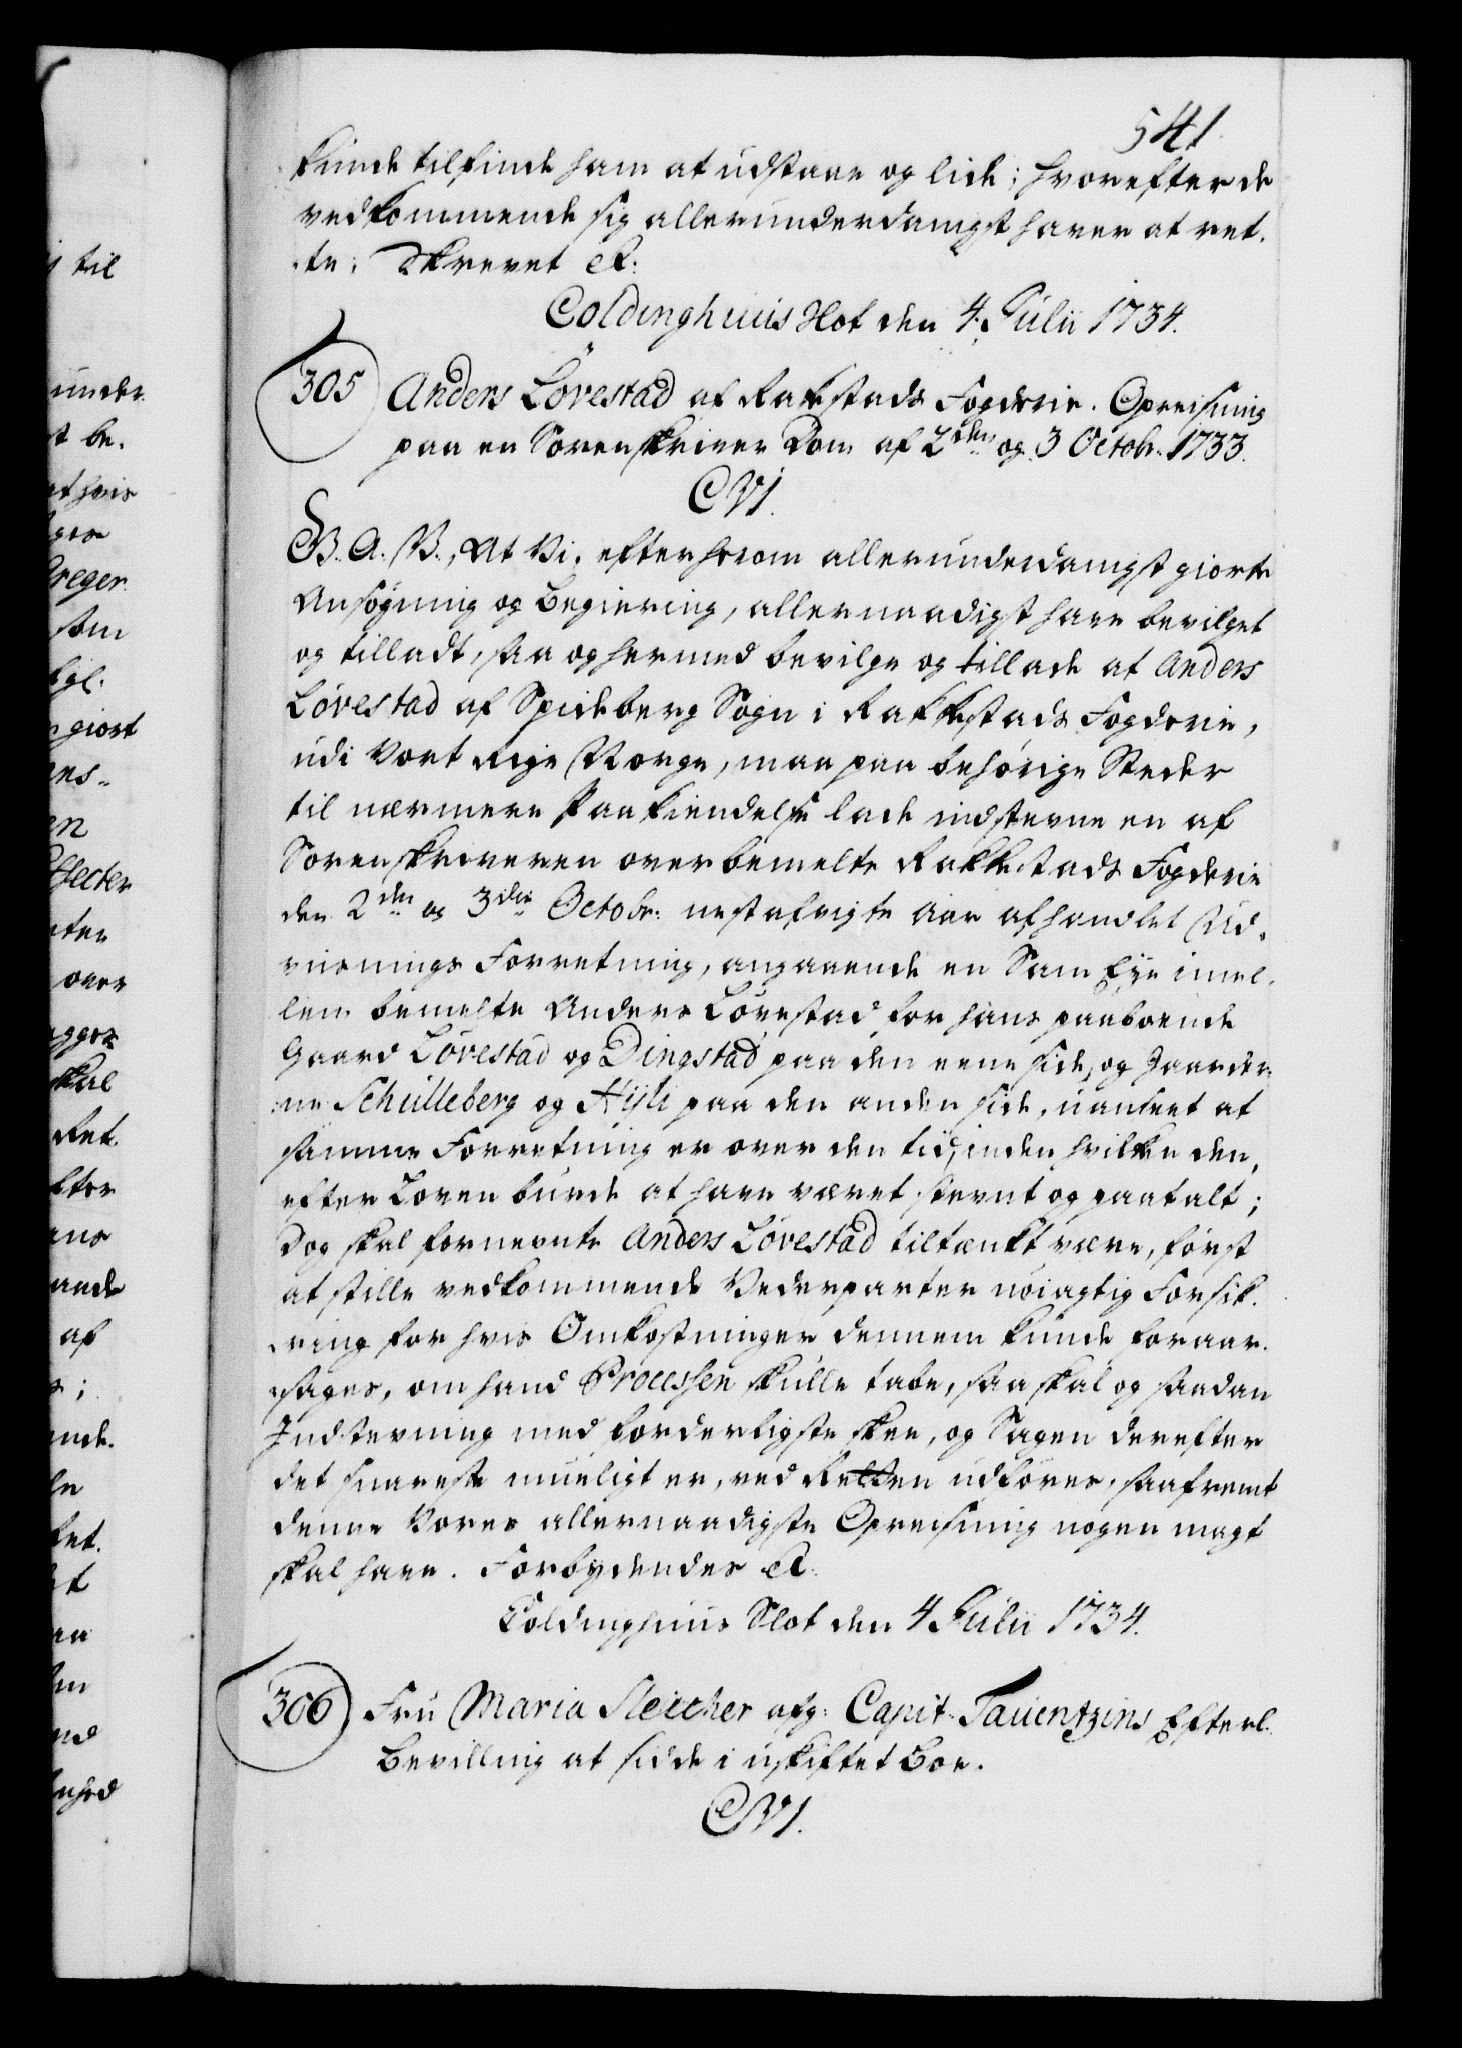 541.
kunde tilfinde ham at udstaae og lide; hvorefter de
vedkommende sig allerunderdanigst haver at ret-
te; Skrevet etc:
Coldinghuus Slot den 4. Julii 1734.
305 Anders Lövestad af Rakestads Fogderie. Opreisning
paa en Sorenskriver Dom af 2den og 3 Octobr. 1733.
C VI.
G. A. V., At Vi, efter herom allerunderdanigst giorte
Ansögning og Begiering, allernaadigst have bevilget
og tilladt, saa og hermed bevilge og tillade at Anders
Lövestad af Spideberg Sogn i Rakkestads Fogderie,
udi Vort Rige Norge, maa paa behörige Steder
til nærmere Paakiendelse lade indstevne en af
Sorenskriveren over bemelte Rakkestads Fogderie
den 2den og 3die Octobr: nestafvigte Aar afhandlet Ud-
viisnings Forretning, angaaende en Sam Eye imel-
lem bemelte Anders Lövestad for hans paaboende
Gaard Lövestad og Dingstad paa den eene side, og Gaarder-
ne Schulleberg og Hijli paa den anden side, uanseet at
samme Forretning er over den tid, inden hvilken den,
efter Loven burde at have været stevnt og paatalt;
Dog skal fornevnte Anders Lövestad tiltænkt være, först
at stille vedkommende Vederparter nöiagtig Forsik-
ring for hvis Omkostninger dennem kunde foraar-
sages, om hand Processen skulle tabe, saa skal og saadan
Indstevning med forderligste skee, og Sagen derefter
det snareste mueligt er, ved Retten udföres, saafremt
denne Vores allernaadigste Opreisning nogen magt
skal have. Forbydendes etc.
Coldinghuus Slot den 4 Julii 1734.
306 Fru Maria Sleicher afg: Capit. Tauentzins Efterl.
Bevilling at sidde i uskiftet Boe.
C VI.